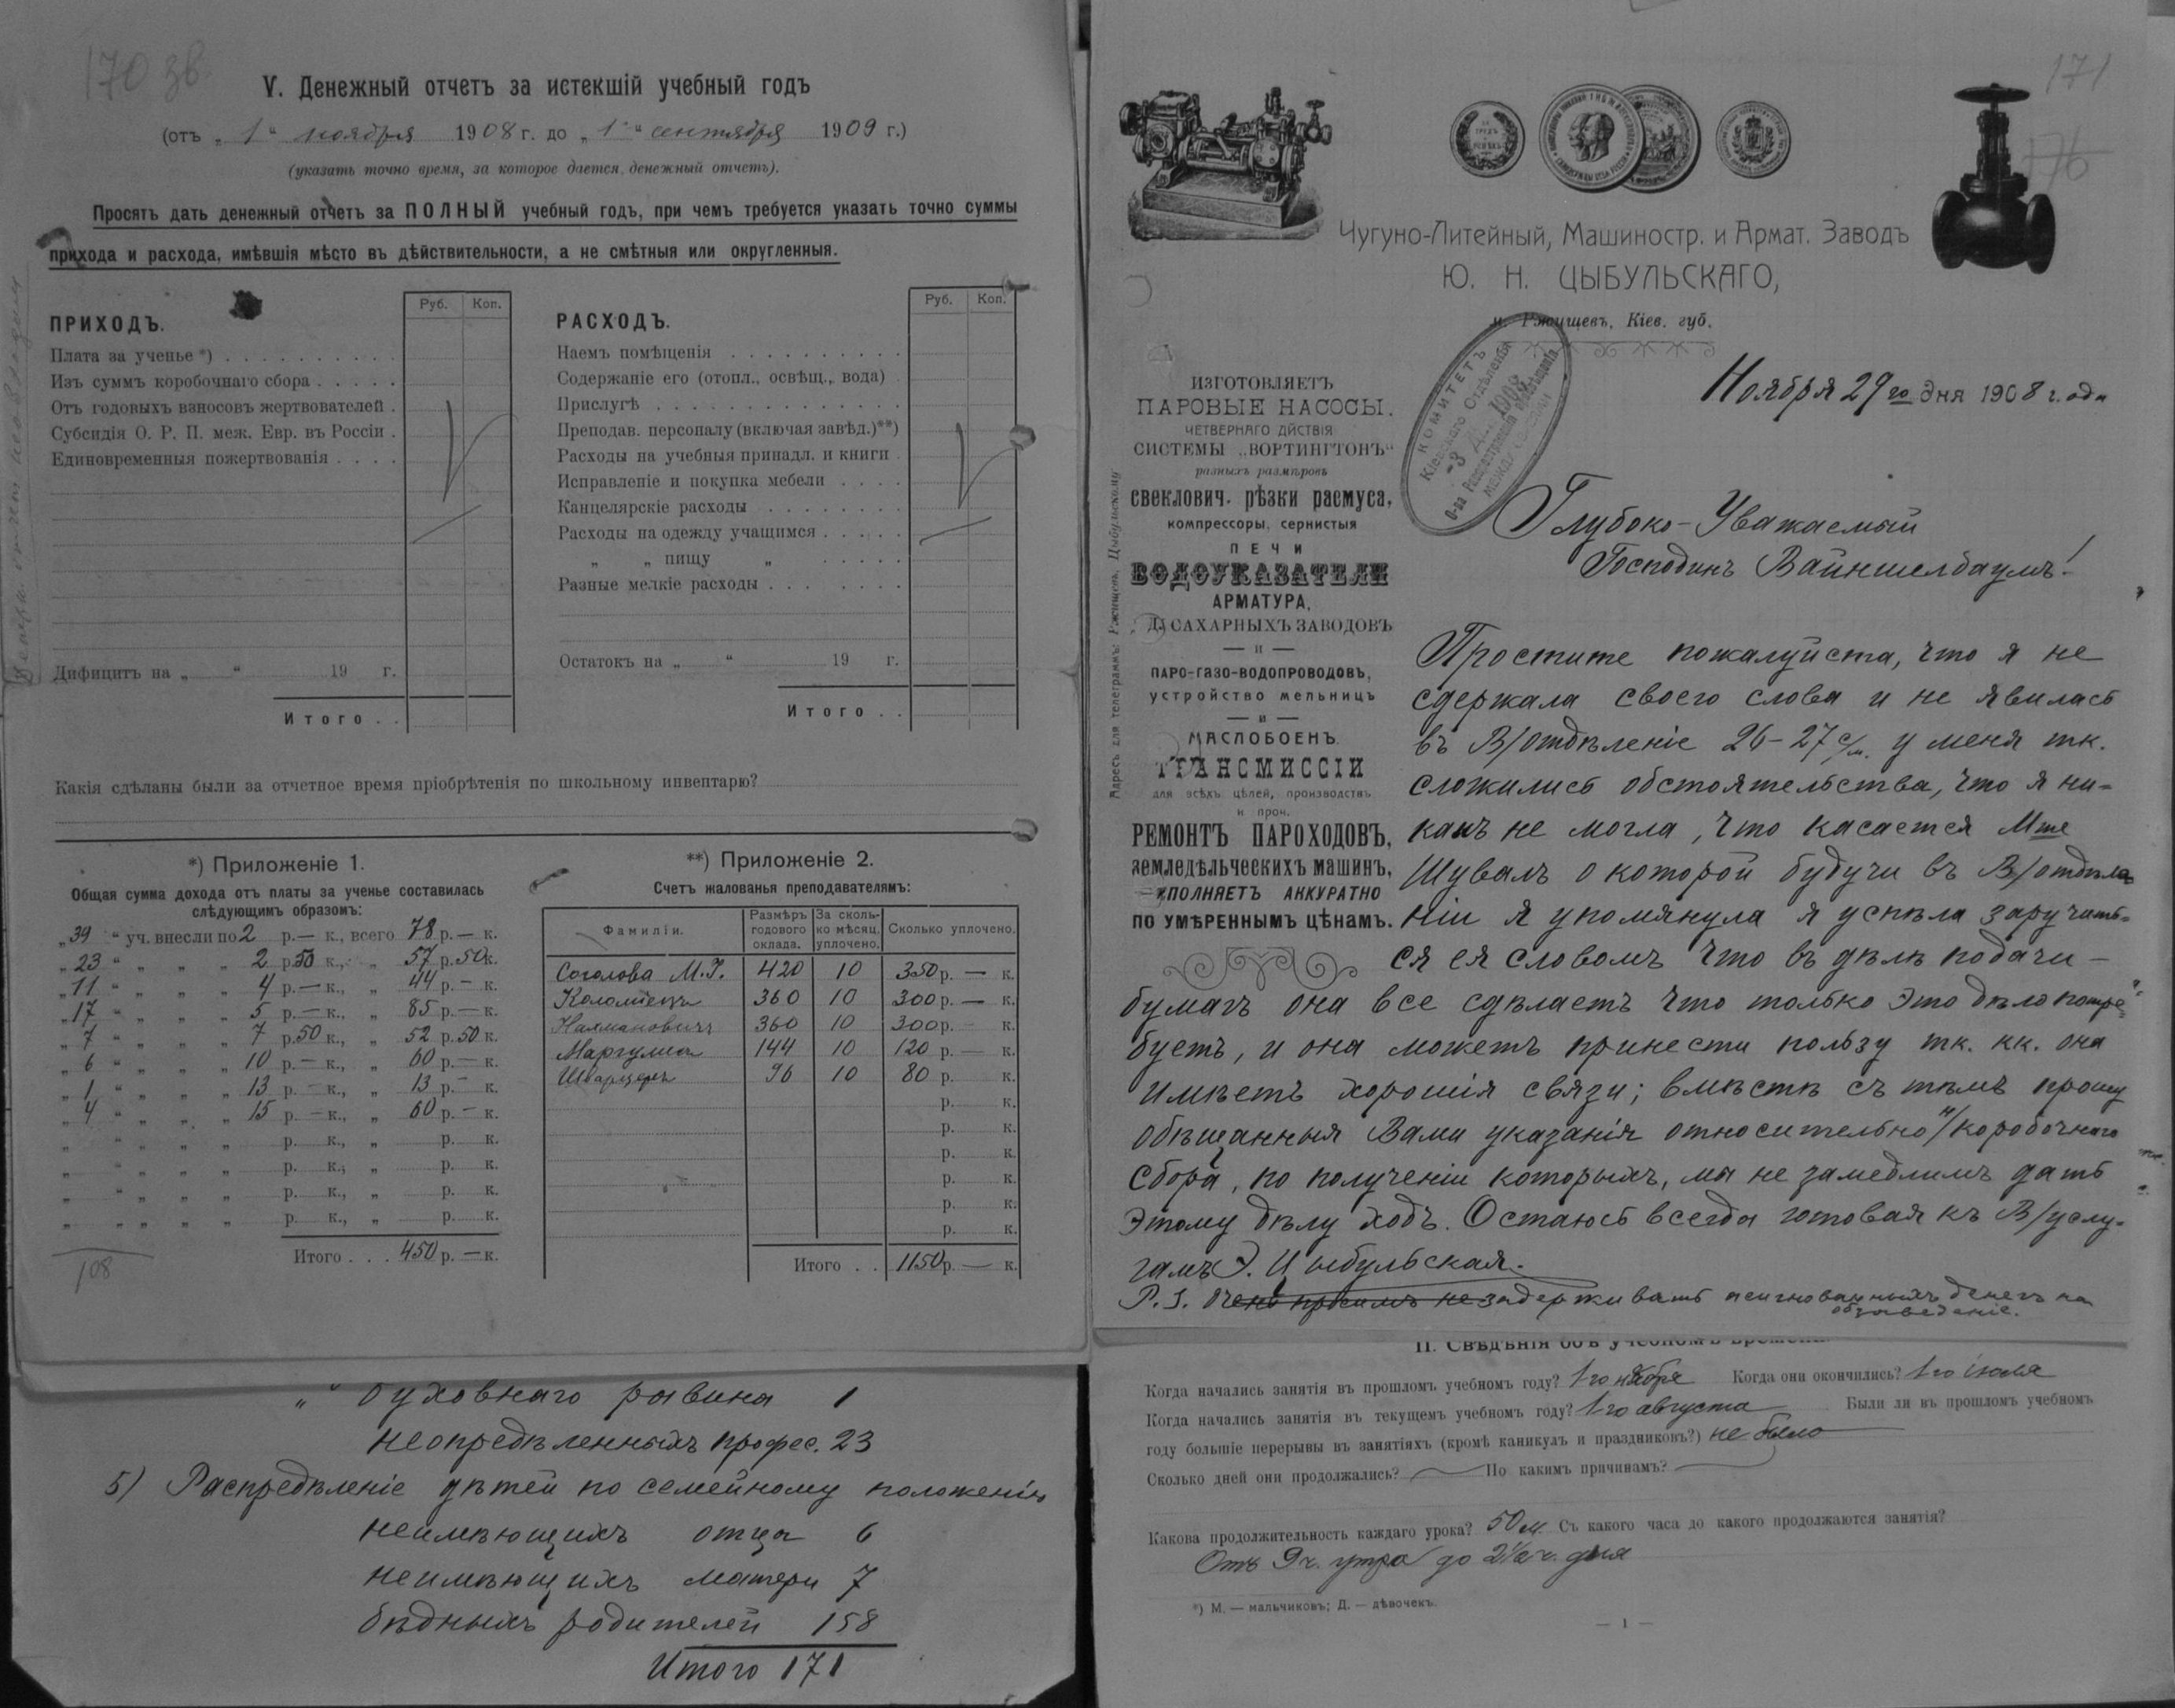 170 зв.
V. Денежный отчетъ за истекшій учебный годъ
(отъ „1“ ноября 1908 г. до „1“ сентября 1909 г.)
(указать точно время, за которое дается денежный отчетъ).
Просятъ дать денежный отчетъ за ПОЛНЫЙ учебный годъ, при чемъ требуется указать точно суммы
прихода и расхода, имѣвшія мѣсто въ дѣйствительности, а не смѣтныя или округленныя.
ПРИХОДЪ. Руб. Коп.
Плата за ученье *)
Изъ суммъ коробочнаго сбора
Отъ годовыхъ взносовъ жертвователей
Субсидія О. Р. П. меж. Евр. въ Россіи
Единовременныя пожертвованія
Дифицитъ на „ “ 19 г.
Итого
РАСХОДЪ. Руб. Коп.
Наемъ помѣщенія
Содержаніе его (отопл., освѣщ., вода)
Прислугѣ
Преподав. персоналу (включая завѣд.)**)
Расходы на учебныя принадл. и книги
Исправленіе и покупка мебели
Канцелярскіе расходы
Расходы на одежду учащимся
„ „ пищу „
Разные мелкіе расходы
Остатокъ на „ “ 19 г.
Итого
Какія сдѣланы были за отчетное время пріобрѣтенія по школьному инвентарю?
*) Приложеніе 1.
Общая сумма дохода отъ платы за ученье составилась
слѣдующимъ образомъ:
„39“ уч. внесли по 2 р.— к., всего 78 р.— к.
„23“ „ „ „ 2 р. 50 к., „ 57 р. 50 к.
„11“ „ „ „ 4 р.— к., „ 44 р.— к.
„17“ „ „ „ 5 р.— к., „ 85 р.— к.
„7“ „ „ „ 7 р. 50 к., „ 52 р. 50 к.
„6“ „ „ „ 10 р.— к., „ 60 р.— к.
„1“ „ „ „ 13 р.— к., „ 13 р.— к.
„4“ „ „ „ 15 р.— к., „ 60 р.— к.
„ “ „ „ „ р. к., „ р. к.
„ “ „ „ „ р. к., „ р. к.
„ “ „ „ „ р. к., „ р. к.
„ „ „ „ „ р. к., „ р. к.
108
Итого . . . 450 р.— к.
**) Приложеніе 2.
Счетъ жалованья преподавателямъ:
Фамиліи. Размѣръ годового оклада. За сколько мѣсяц. уплочено. Сколько уплочено.
Соголова М.Г. 420 10 350 р. — к.
Коломіецъ 360 10 300 р. — к.
Нахмановичъ 360 10 300 р. — к.
Маргулисъ 144 10 120 р. — к.
Шварцеръ 96 10 80 р. к.
р. к.
р. к.
р. к.
р. к.
р. к.
р. к.
Итого . . 1150 р. — к.
„ “ духовнаго равина 1
неопредѣленныхъ профес. 23
5) Распредѣленіе дѣтей по семейному положенію
неимѣющихъ отца 6
неимѣющихъ матери 7
бѣдныхъ родителей 158
Итого 171
171
176
Чугуно-Литейный, Машиностр. и Армат. Заводъ
Ю. Н. ЦЫБУЛЬСКАГО,
м. Ржищевъ, Кіев. губ.
КОМИТЕТЪ
Кіевскаго Отдѣленія
-3 ДЕК 1908
О-ва Распространенія Просвѣщенія
МЕЖДУ ЕВРЕЯМИ
Адресъ для телеграммъ: Ржищевъ, Цыбульскому
ИЗГОТОВЛЯЕТЪ
ПАРОВЫЕ НАСОСЫ.
ЧЕТВЕРНАГО ДЙСТВІЯ
СИСТЕМЫ „ВОРТИНГТОНЪ“
разныхъ размѣровъ
свеклович. рѣзки расмуса,
компрессоры, сернистыя
ПЕЧИ
ВОДОУКАЗАТЕЛИ
АРМАТУРА,
Дл САХАРНЫХЪ ЗАВОДОВЪ
— И —
ПАРО-ГАЗО-ВОДОПРОВОДОВЪ,
устройство мельницъ
— и —
МАСЛОБОЕНЪ.
ТРАНСМИССІИ
для всѣхъ цѣлей, производствъ
и проч.
РЕМОНТЪ ПАРОХОДОВЪ,
земледѣльческихъ машинъ,
ИСПОЛНЯЕТЪ АККУРАТНО
ПО УМѢРЕННЫМЪ ЦѢНАМЪ.
Ноября 29го дня 1908 года
Глубоко-Уважаемый
Господинъ Вайншелбаумъ!
Простите пожалуйста, что я не
сдержала своего слова и не явилась
въ В/отдѣленіе 26-27 с/м. у меня тк.
сложились обстоятельства, что я ни-
какъ не могла, что касается Мme
Шувалъ о которой будучи въ В/отдѣле-
ніи я упомянула я успѣла заручить-
ся ея словомъ что въ дѣлѣ подачи
бумагъ она все сдѣлаетъ что только это дѣло потре-
буетъ, и она можетъ принести пользу тк. кк. она
имѣетъ хорошія связи; вмѣстѣ съ тѣмъ прошу
обѣщанныя Вами указанія относительно н/коробочнаго
сбора, по полученіи которыхъ, мы не замедлимъ дать
этому дѣлу ходъ. Остаюсь всегда готовая къ В/услу-
гамъ Э. Цыбульская.
P.S. Очень просимъ не задерживать асигнованныхъ денегъ на
обзаведеніе.
II. Свѣдѣнія объ учебномъ времени.
Когда начались занятія въ прошломъ учебномъ году? 1го ноября Когда они окончились? 1го іюля
Когда начались занятія въ текущемъ учебномъ году? 1го августа Были ли въ прошломъ учебномъ
году большіе перерывы въ занятіяхъ (кромѣ каникулъ и праздниковъ?) не было
Сколько дней они продолжались? По какимъ причинамъ?
Какова продолжительность каждаго урока? 50 м. Съ какого часа до какого продолжаются занятія?
Отъ 9 ч. утра до 2½ ч. дня
*) М. — мальчиковъ; Д. — дѣвочекъ.
— 1 —